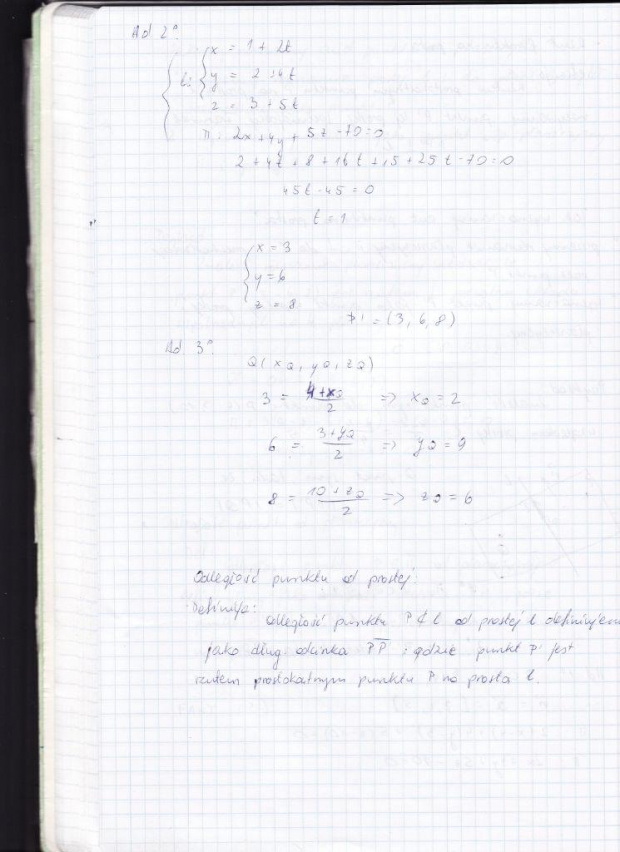 Ad 2°
l: { x = 1 + 2t
y = 2 + 4t
z = 3 + 5t
π: 2x + 4y + 5z - 70 = 0
2 + 4t + 8 + 16t + 15 + 25t - 70 = 0
45t - 45 = 0
t = 1
{ x = 3
y = 6
z = 8
P' = (3, 6, 8)
Ad. 3°
Q(xQ, yQ, zQ)
3 = (4+xQ)/2 => xQ = 2
6 = (3+yQ)/2 => yQ = 9
8 = (10+zQ)/2 => zQ = 6
Odległość punktu od prostej:
Definicja:
odległość punktu P ∉ l od prostej l definiujemy
jako dług odcinka PP' gdzie punkt P' jest
rzutem prostokątnym punktu P na prostą l.